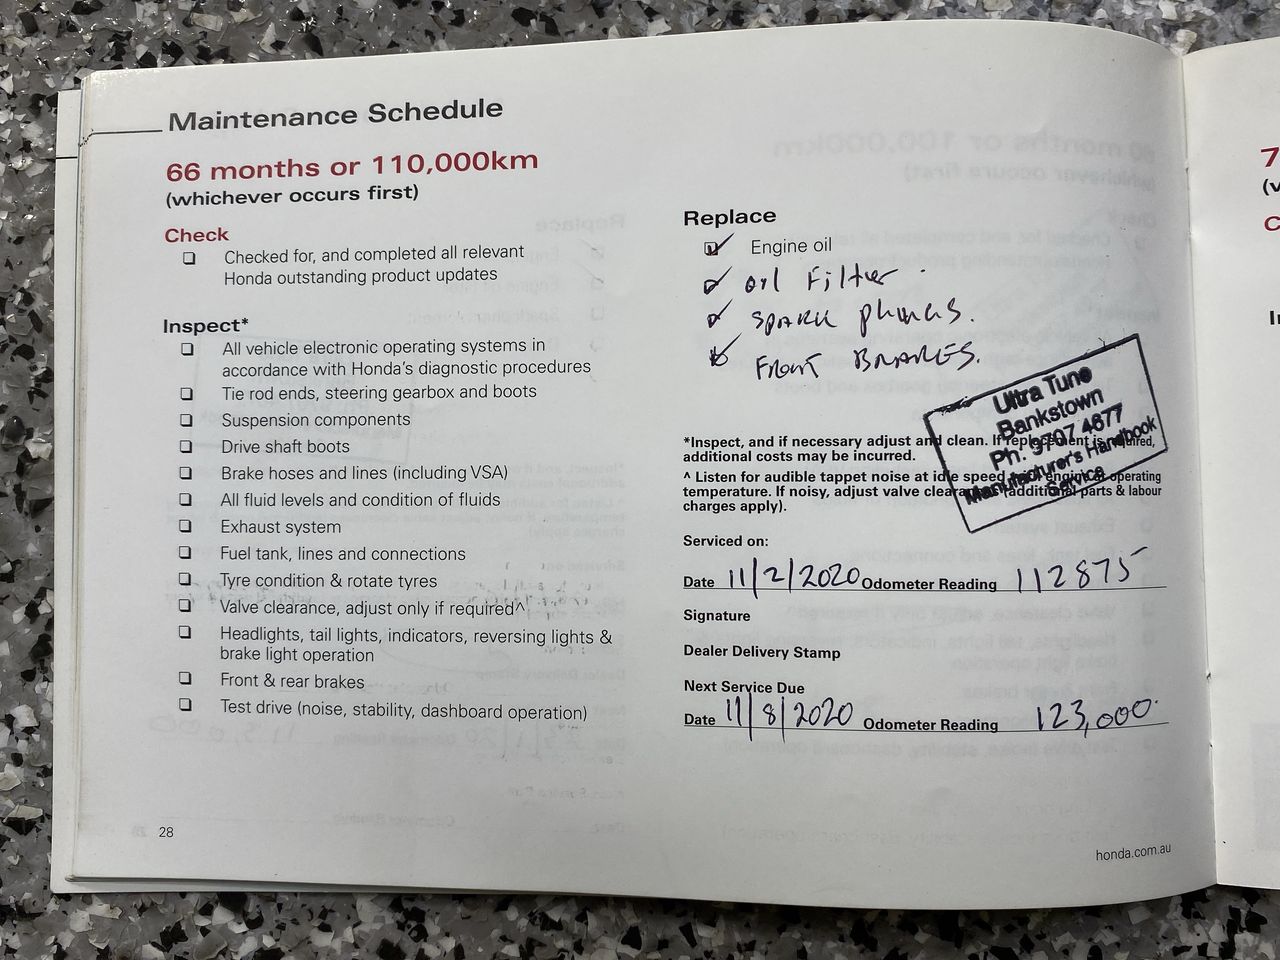 Maintenance Schedule
66 months or 110,000km
(whichever occurs first)
Check
Checked for, and completed all relevant
Honda outstanding product updates
Inspect*
All vehicle electronic operating systems in
accordance with Honda's diagnostic procedures
Tie rod ends, steering gearbox and boots
Suspension components
Drive shaft boots
Brake hoses and lines (including VSA)
All fluid levels and condition of fluids
Exhaust system
Fuel tank, lines and connections
Tyre condition & rotate tyres
Valve clearance, adjust only if required^
Headlights, tail lights, indicators, reversing lights &
brake light operation
Front & rear brakes
Test drive (noise, stability, dashboard operation)
28
Replace
Engine oil
oil Filter
SPARK
FRONT BRAKES.
Ultra Tune
Bankstown
Ph: 9707 4677
Manufacturer's Handbook
Service
*Inspect, and if necessary adjust and clean. If replacement is required,
additional costs may be incurred.
^ Listen for audible tappet noise at idle speed engine at operating
temperature. If noisy, adjust valve clearance (additional parts & labour
charges apply).
Serviced on:
Date 11/2/2020 Odometer Reading 112875
Signature
Dealer Delivery Stamp
Next Service Due
Date 11/8/2020 Odometer Reading 123,000
honda.com.au
7
(v
C